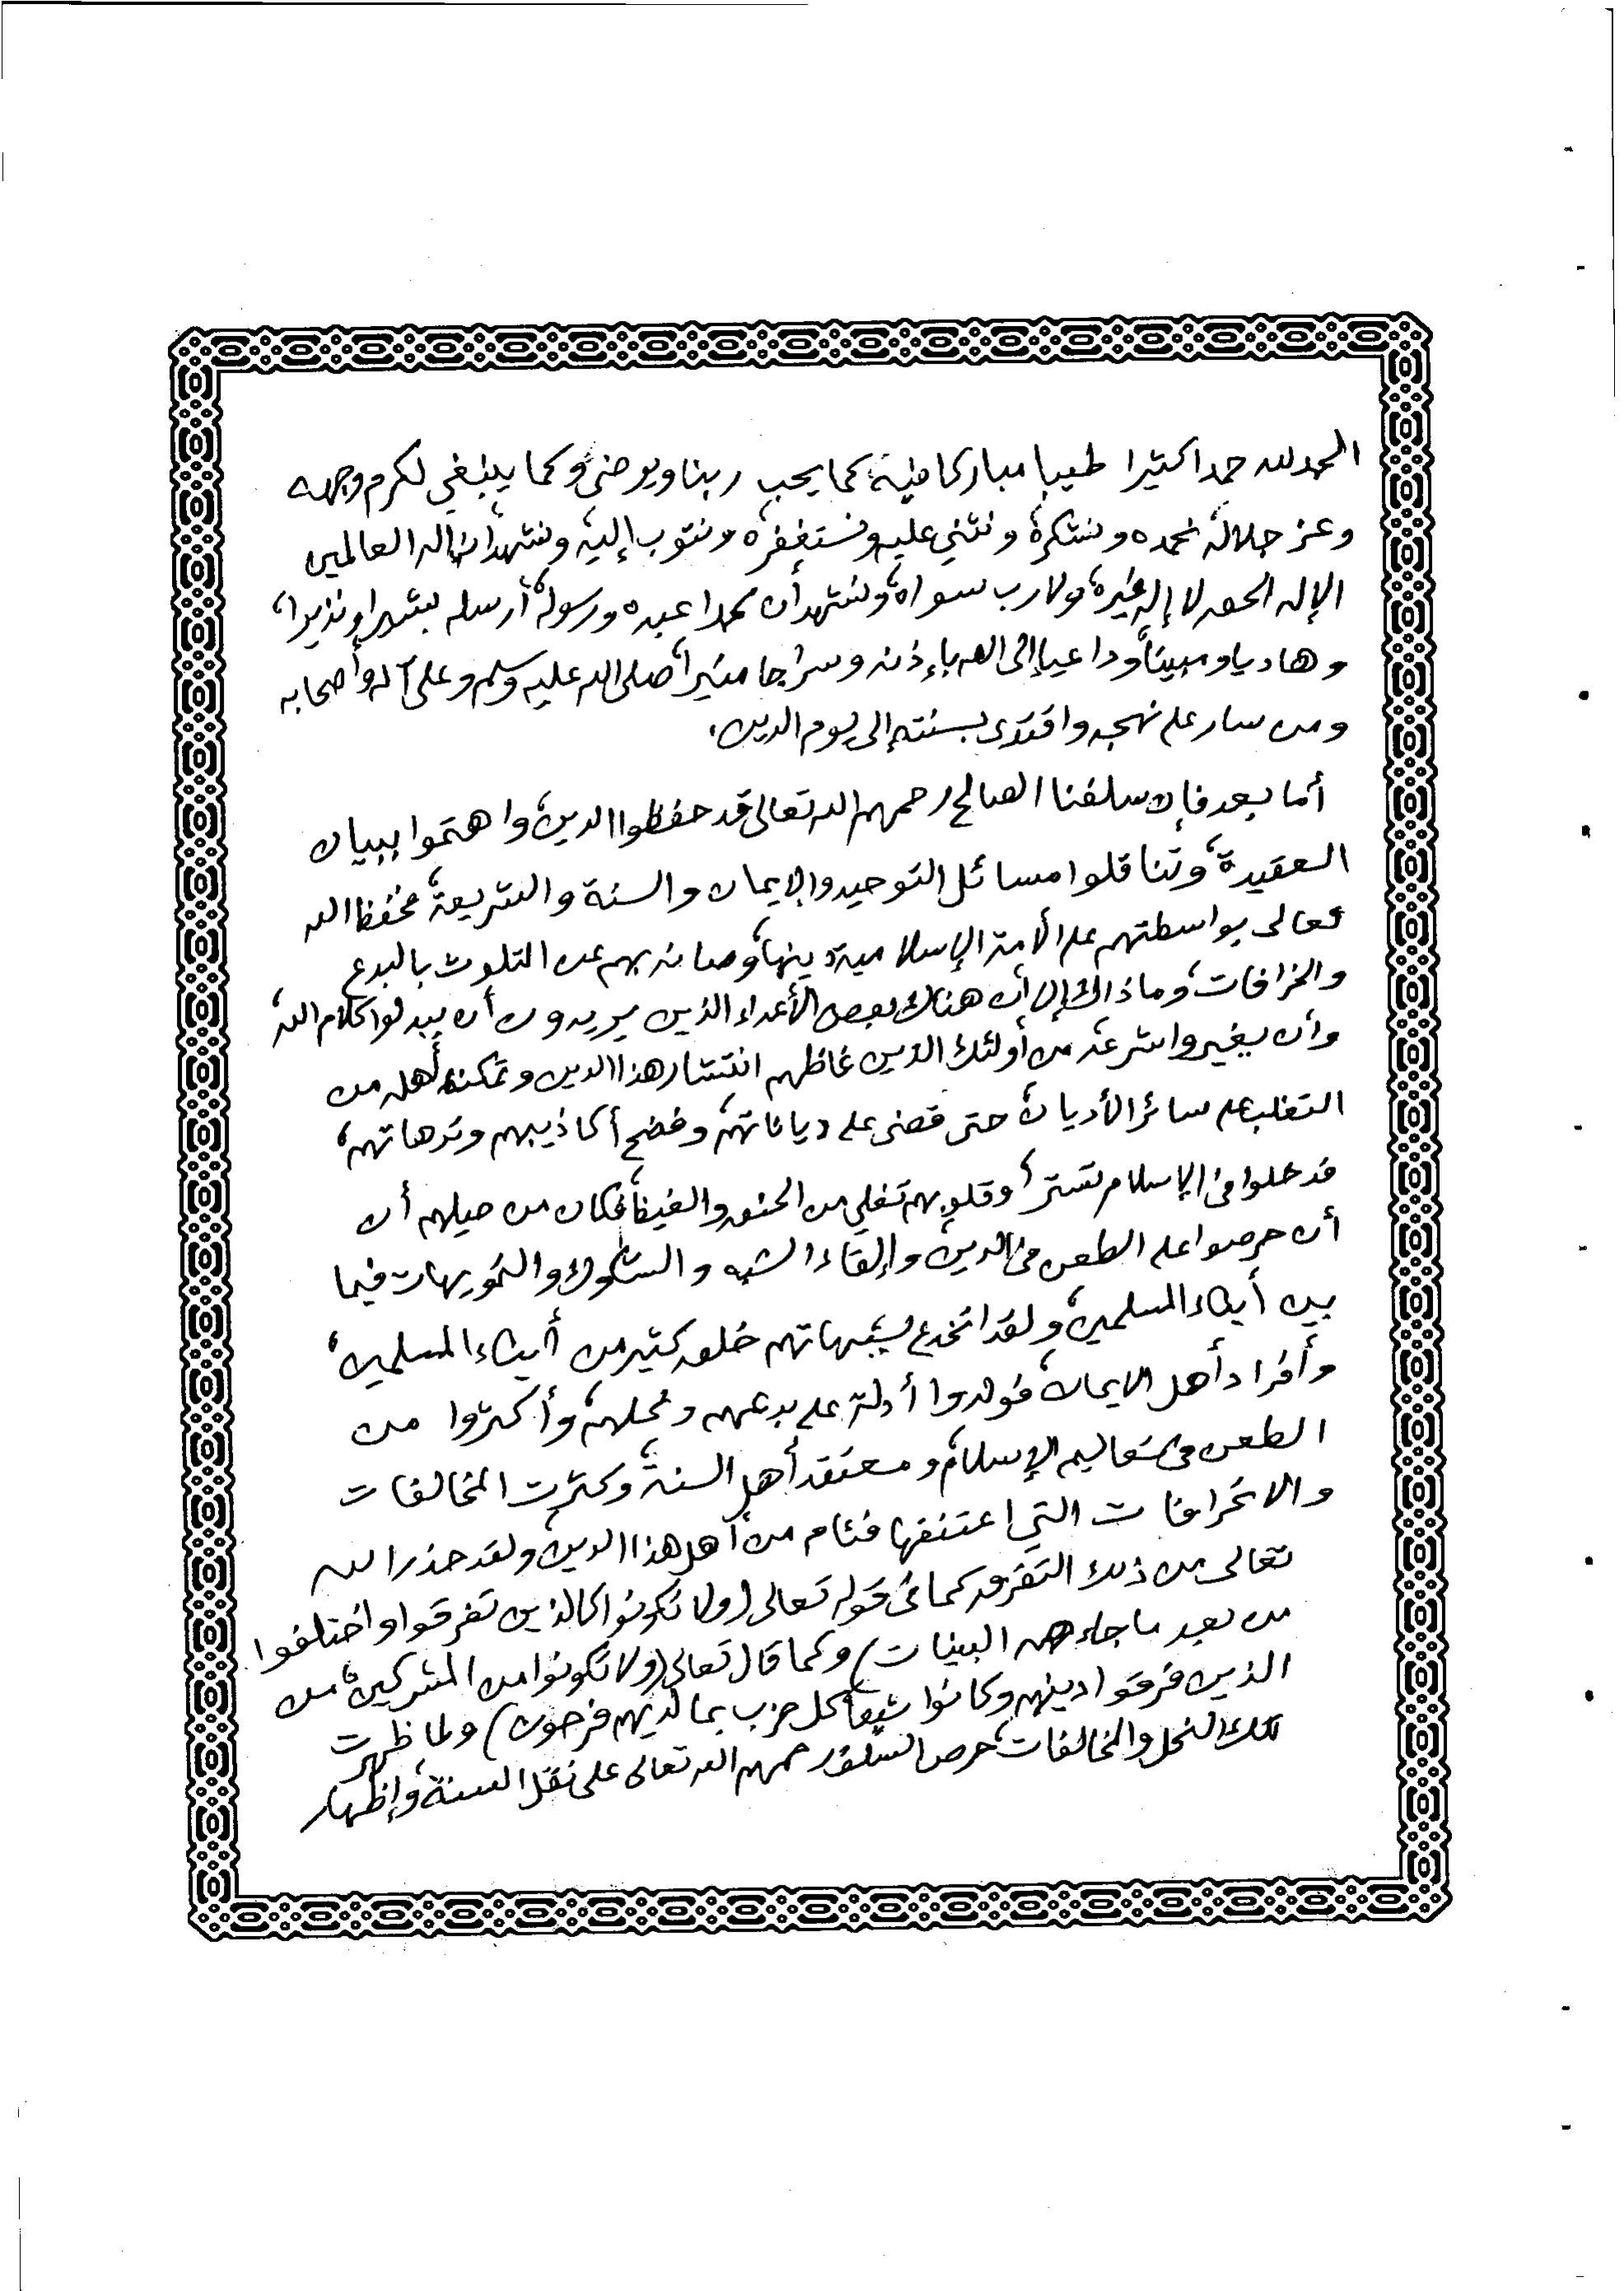 الحمد لله حمدا كثيرا طيبا مباركا فيه، كما يحب ربنا ويرضى، وكما ينبغي لكرم وجهه
وعز جلاله، نحمده ونشكره، ونثني عليه ونستغفره، ونتوب إليه، ونشهد أن إله العالمين
الإله الحق لا إله غيره، ولا رب سواه، ونشهد أن محمدا عبده ورسوله، أرسله بشيرا ونذيرا،
وهاديا ومبينا، وداعيا إلى الله بإذنه وسراجا منيرا، صلى الله عليه وسلم وعلى آله وأصحابه
ومن سار على نهجه واقتدى بسنته إلى يوم الدين.
أما بعد فإن سلفنا الصالح رحمهم الله تعالى قد حفظوا الدين، واهتموا ببيان
العقيدة، وتناقلوا مسائل التوحيد والإيمان والسنة والشريعة، فحفظ الله
تعالى بواسطتهم على الأمة الإسلامية دينها، وصانه بهم عن التلوث بالبدع
والخرافات، وما ذاك إلا أن هناك بعض الأعداء الذين يريدون أن يبدلوا كلام الله،
وأن يغيروا شرعه من أولئك الذين غاظهم انتشار هذا الدين وتمكنه أهله من
التغلب على سائر الأديان، حتى قضى على دياناتهم، وفضح أكاذيبهم وترهاتهم،
فدخلوا في الإسلام تسترا، وقلوبهم تغلي من الحنق والغيظ، فكان من حيلهم أن
أن حرصوا على الطعن في الدين، وإلقاء الشبه والشكوك والتمويهات فيما
بين أبناء المسلمين، ولقد انخدع بشبهاتهم خلق كثير من أبناء المسلمين،
وأفراد أهل الايمان، فولدوا أدلة على بدعهم ونحلهم، وأكثروا من
الطعن في تعاليم الإسلام، ومعتقد أهل السنة، وكثرت المخالفات
والانحرافات التي اعتنقها فئام من أهل هذا الدين، ولقد حذر الله
تعالى من ذلك التفرق كما في قوله تعالى (ولا تكونوا كالذين تفرقوا واختلفوا
من بعد ما جاءهم البينات) وكما قال تعالى (ولا تكونوا من المشركين، من
الذين فرقوا دينهم وكانوا شيعا كل حزب بما لديهم فرحون) ولما ظهرت
تلك النحل والمخالفات، حرص السلف رحمهم الله تعالى على نقل السنة، وإظهار